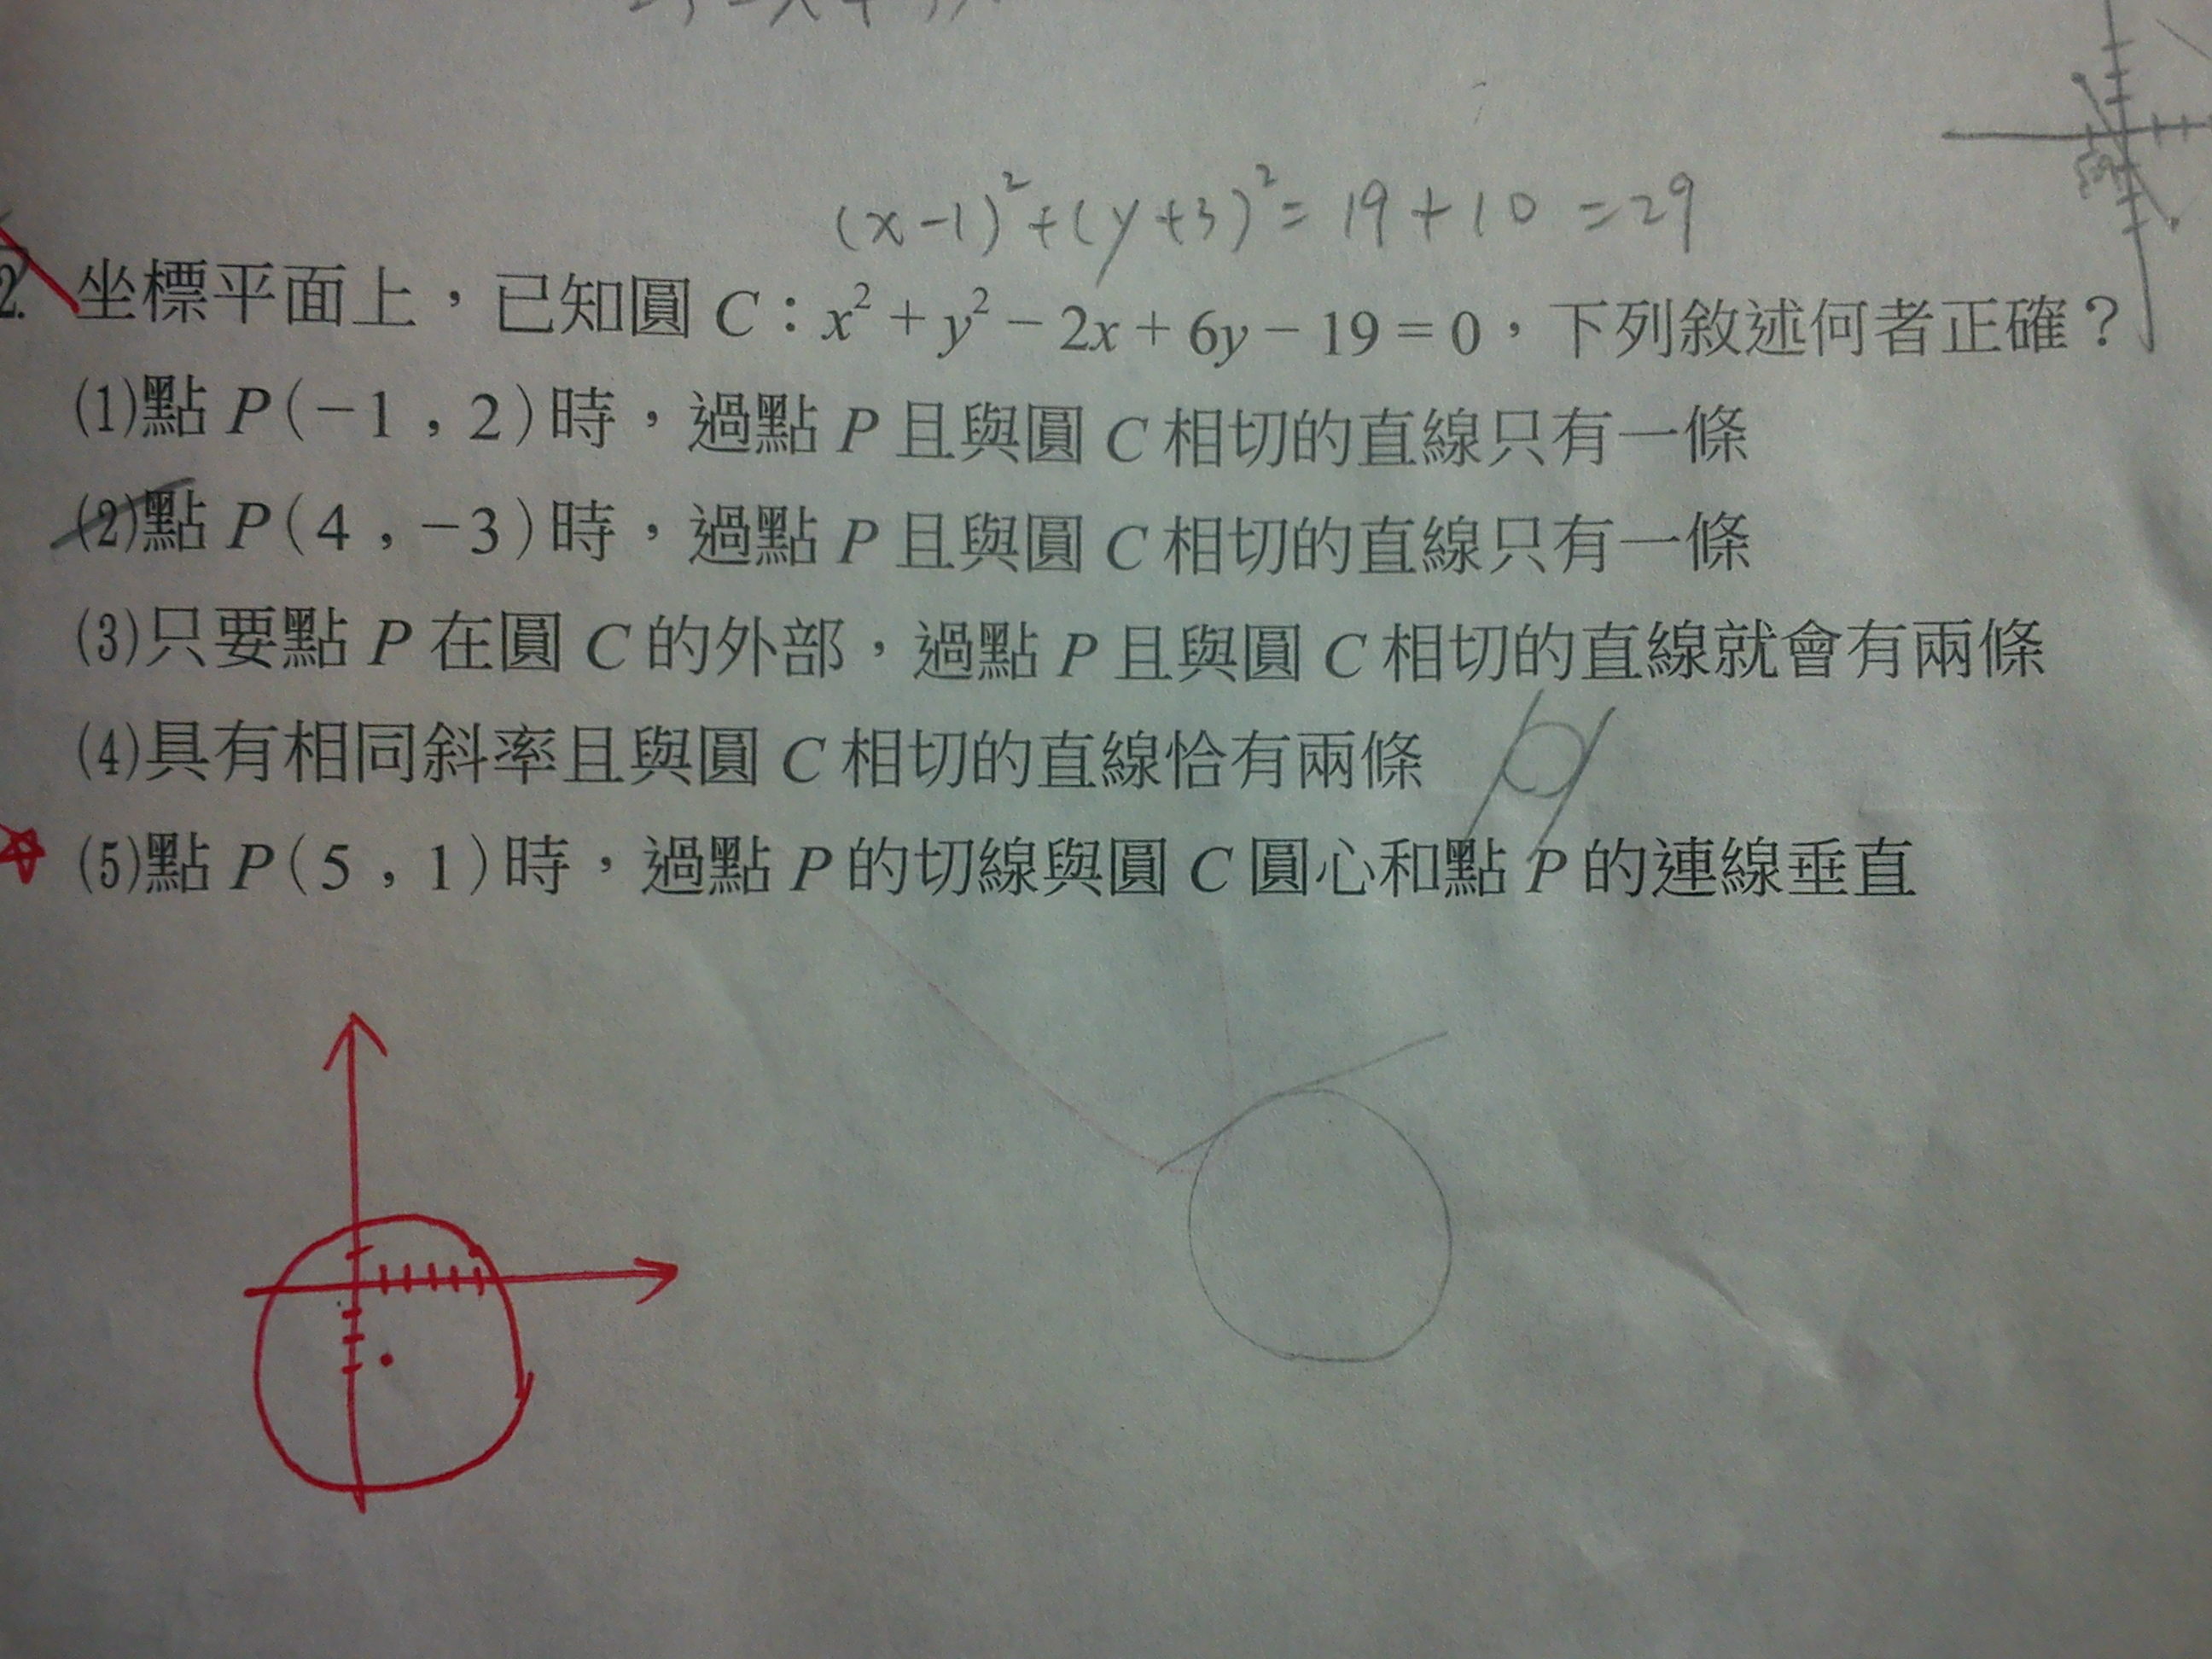 (x-1)²+(y+3)²=19+10=29
2. 坐標平面上，已知圓 C：x²+y²-2x+6y-19=0，下列敘述何者正確？
(1)點 P(-1,2)時，過點 P 且與圓 C 相切的直線只有一條
(2)點 P(4,-3)時，過點 P 且與圓 C 相切的直線只有一條
(3)只要點 P 在圓 C 的外部，過點 P 且與圓 C 相切的直線就會有兩條
(4)具有相同斜率且與圓 C 相切的直線恰有兩條
(5)點 P(5,1)時，過點 P 的切線與圓 C 圓心和點 P 的連線垂直